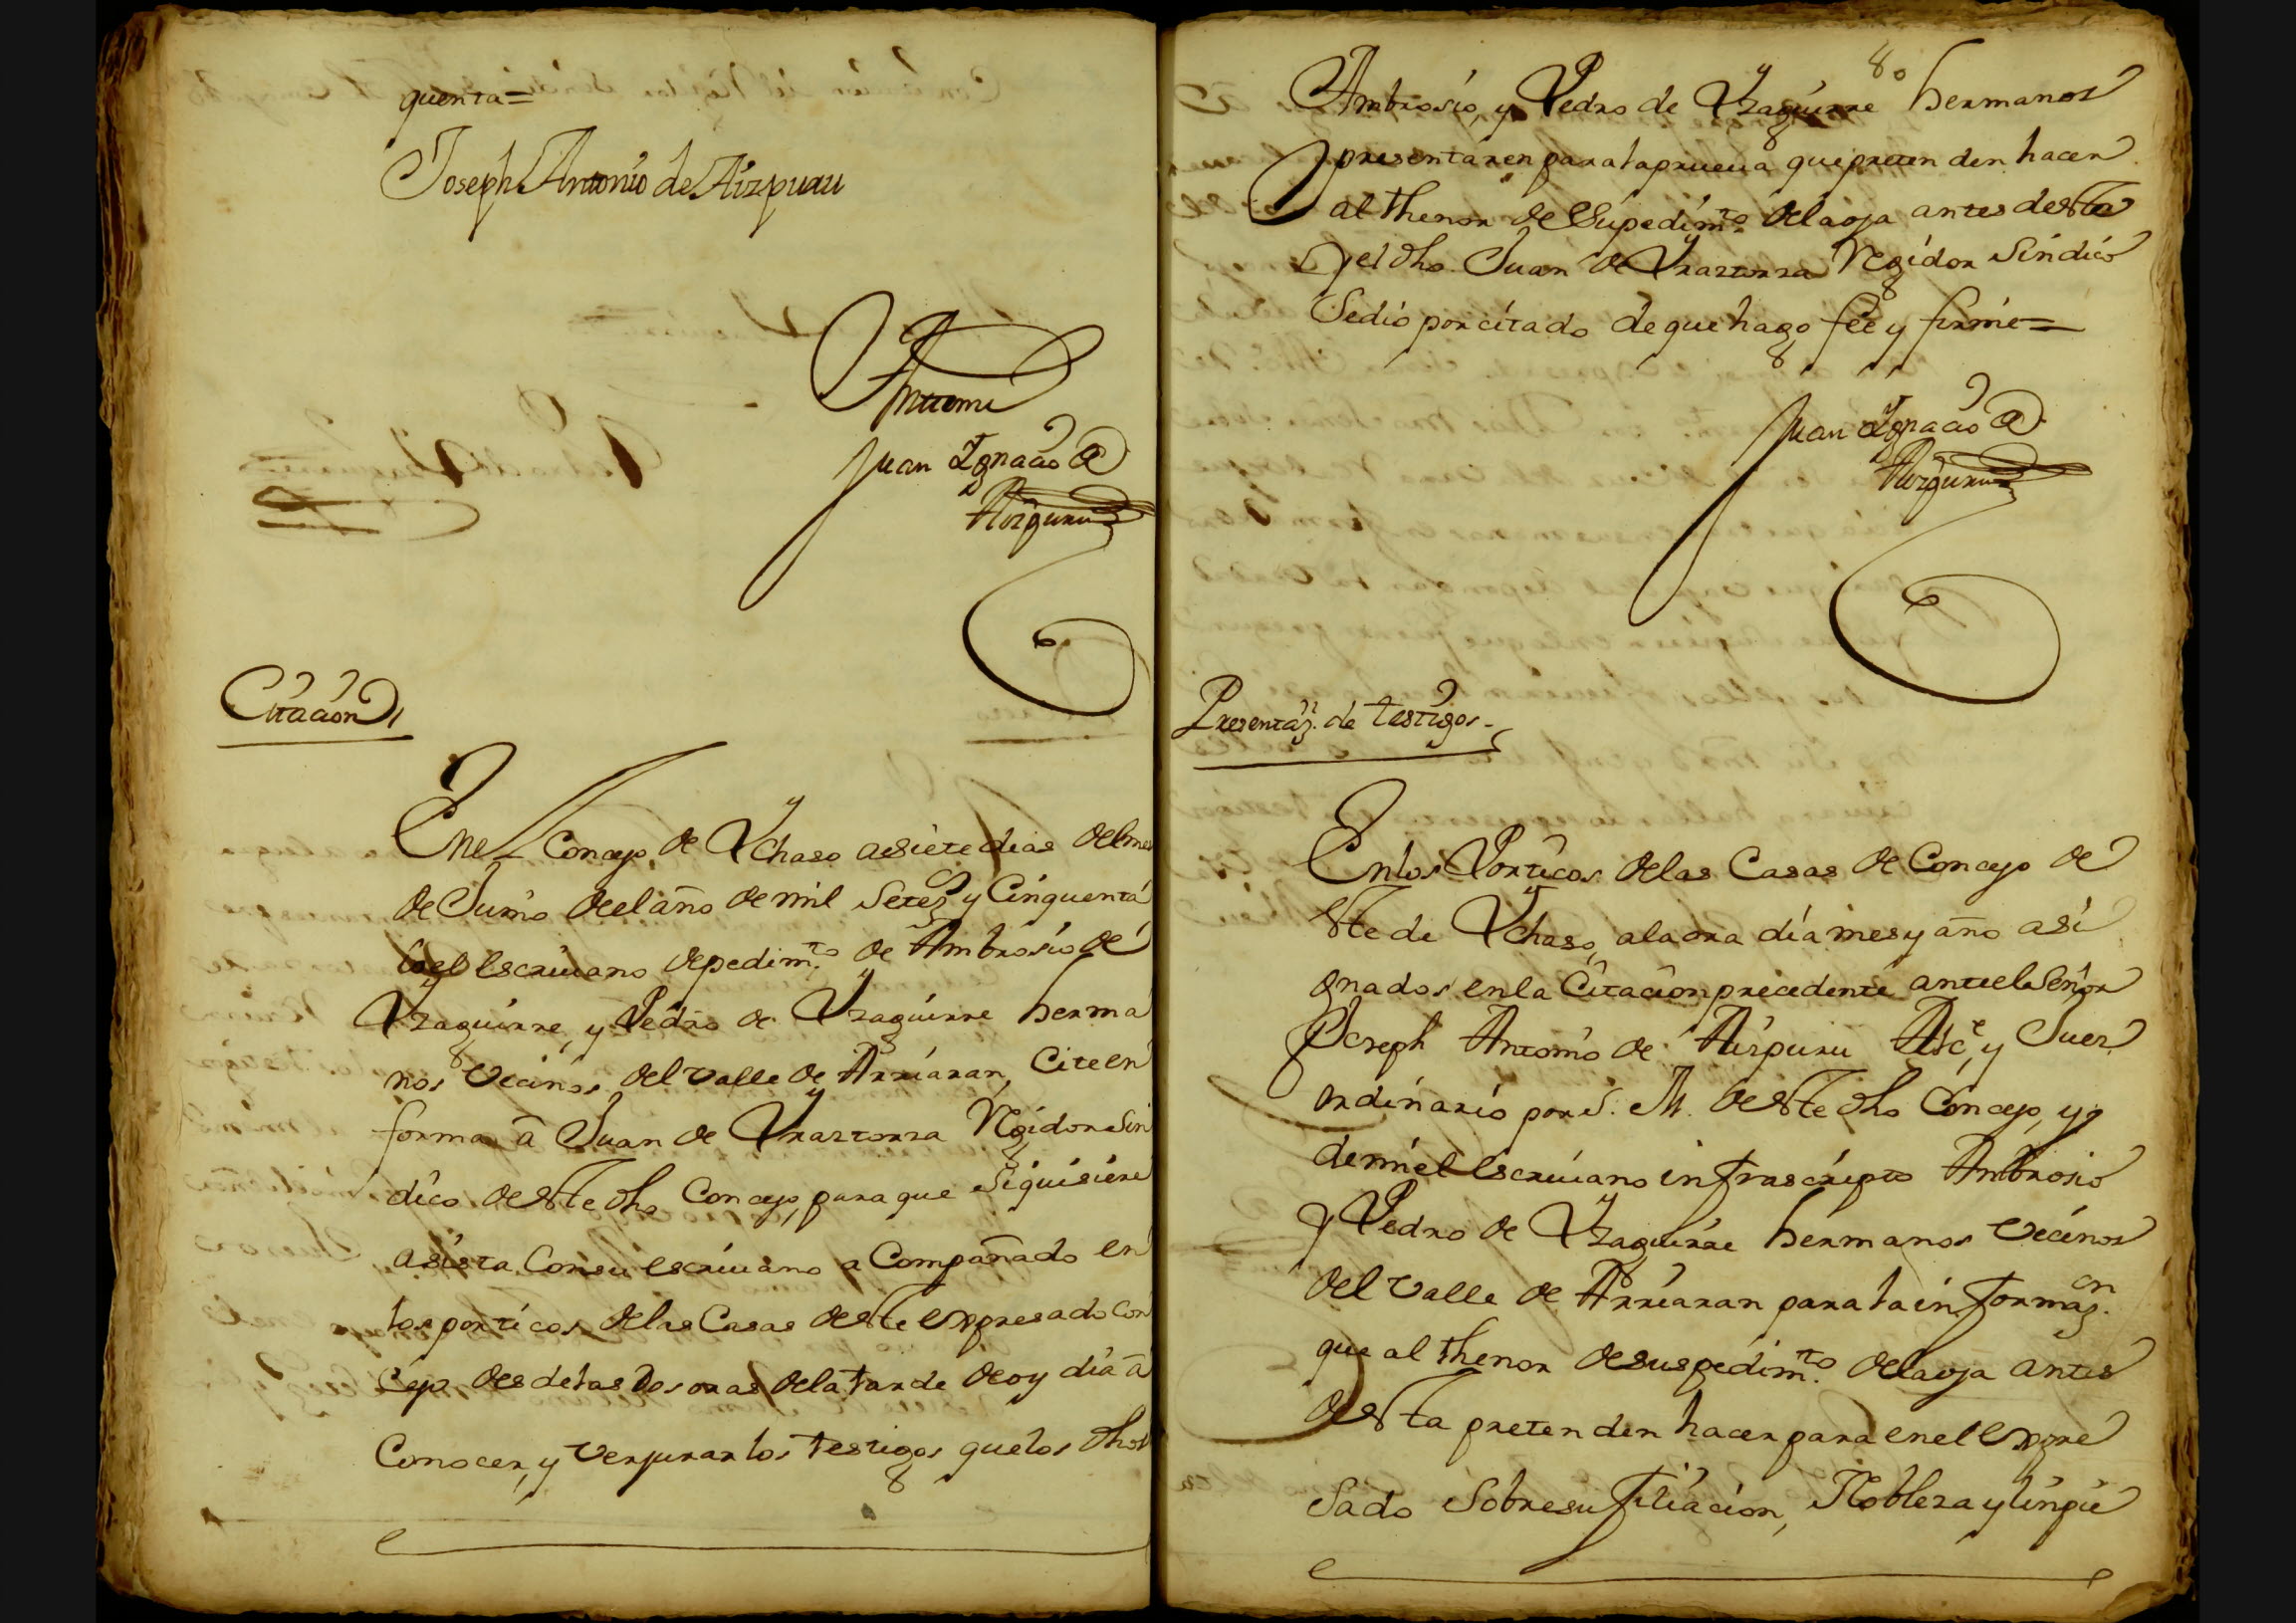 quenta=
Joseph Antonio de Aizpuru
Antemi
Juan Ignacio de
Aizpuru
Citacion
En el Concejo de Ychaso a siete dias del mes
de Junio del año de mil setez.s y Cinquenta
Yo el escriuano de pedim.to de Ambrosio de
Yzaguirre, y Pedro de Yzaguirre herma
nos vecinos del valle de Arriaran, Cite en
forma â Juan de Yraztorza Regidor Sin
dico deste dho Concejo, para que Siquisiere
asista Consu escriuano a Compañado en
los porticos delas Casas deste expresado Con
cejo desdelas Dos oras dela tarde de oy dia â
Conocer, y ver jurar los testigos que los dhos
80
Ambrosio, y Pedro de Yzaguirre hermanos
presentaren para la prueua que pretenden hacer
al thenor de Supedim.to dela oja antes desta
y el dho Juan de Yraztorza Regidor Sindico
Se dio por citado de que hago fee y firmé=
Juan Ignacio de
Aizpuru
Presentaz.n de testigos
En los Porticos delas Casas de Concejo de
ste de Ychaso, ala ora dia mes y año asi
gnados en la Citacion precedente ante el Señor
Joseph Antonio de Aizpuru Alc.e y Juez
ordinario por S. M. deste dho Concejo, y p
de mi el escriuano infrascripto Ambrosio
y Pedro de Yzaguirre hermanos vecinos
del valle de Arriaran para la informaz.on
que al thenor desuspedim.to dela oja antes
desta pretenden hacer para en el expre
sado Sobresu filiacion, Nobleza y limpie